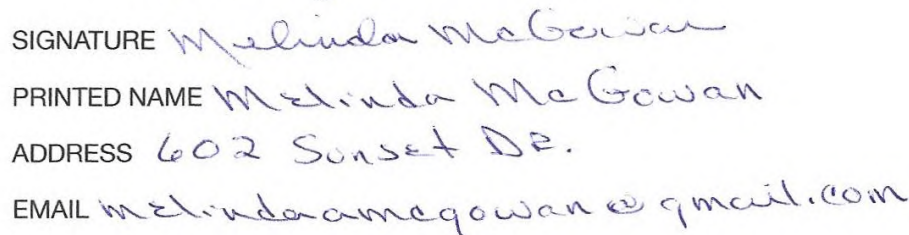 SIGNATURE Melinda McGowan
PRINTED NAME Melinda McGowan
ADDRESS 602 Sunset DR.
EMAIL melindaamcgowan@gmail.com